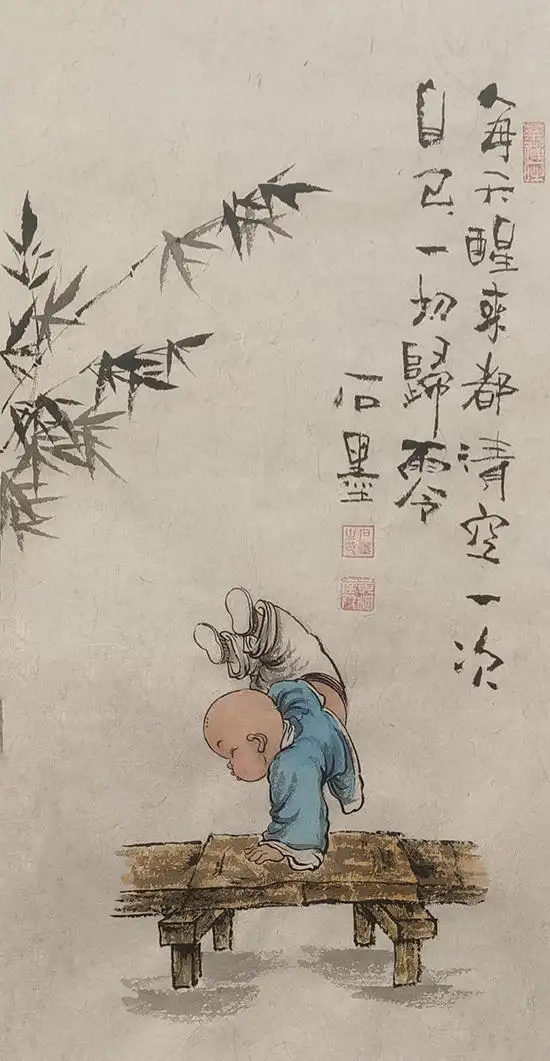 每天醒来都清空一次
自己一切歸零
石墨